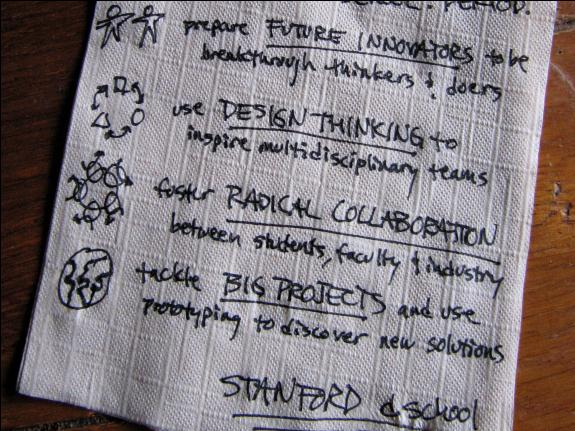 SCHOOL. PERIOD.
prepare FUTURE INNOVATORS to be
breakthrough thinkers & doers
use DESIGN THINKING to
inspire multidisciplinary teams
foster RADICAL COLLABORATION
between students, faculty & industry
tackle BIG PROJECTS and use
prototyping to discover new solutions
STANFORD d school